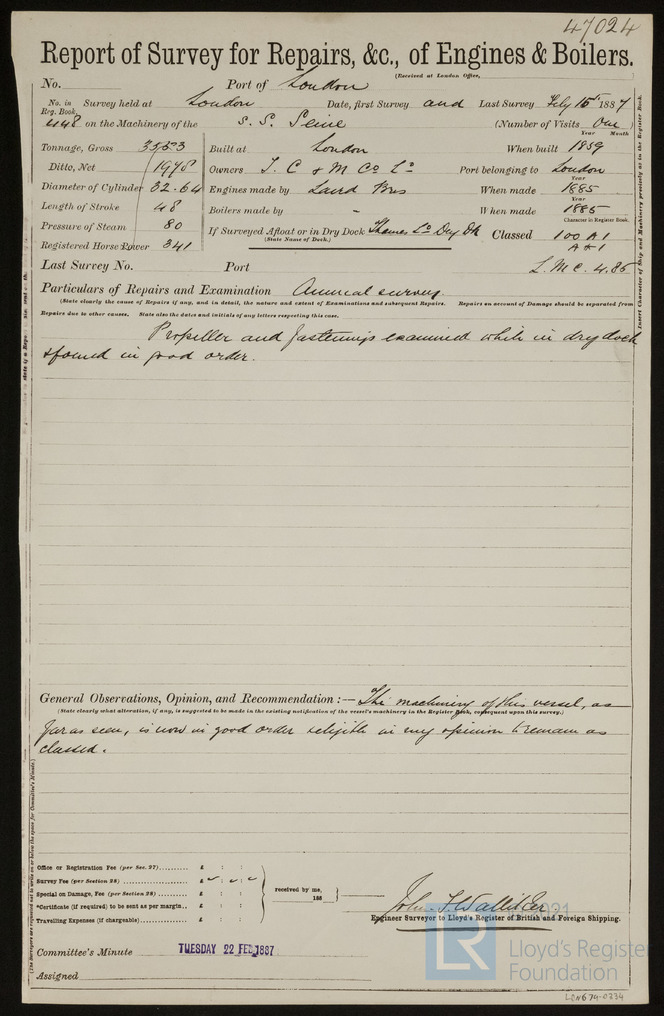 47024
Report of Survey for Repairs, &c., of Engines & Boilers.
(Received at London Office,
No. Port of London
No. in Reg. Book. Survey held at London Date, first Survey and Last Survey Feby 15th 1887
448 on the Machinery of the S. S. Seine (Number of Visits One )
Tonnage, Gross 3553 Built at London When built 1859 Year Month
Ditto, Net 1978 Owners I. C & M Co Ld Port belonging to London
Diameter of Cylinder 32-64 Engines made by Laird Bros When made 1885 Year
Length of Stroke 48 Boilers made by " When made 1885 Year
Pressure of Steam 80 If Surveyed Afloat or in Dry Dock Thames Co Dry Dk Classed 100 A 1 Character in Register Book.
(State Name of Dock.)
Registered Horse Power 341
Last Survey No. Port L.M.C. 4.85
Particulars of Repairs and Examination Annual survey.
(State clearly the cause of Repairs if any, and in detail, the nature and extent of Examinations and subsequent Repairs. Repairs on account of Damage should be separated from
Repairs due to other causes. State also the dates and initials of any letters respecting this case.
Propeller and fastenings examined while in dry dock
& found in good order.
General Observations, Opinion, and Recommendation :— The machinery of this vessel, as
(State clearly what alteration, if any, is suggested to be made in the existing notification of the vessel's machinery in the Register Book, consequent upon this survey.)
far as seen, is now in good order & eligible in my opinion to remain as
classed.
Office or Registration Fee (per Sec. 27) £ : :
Survey Fee (per Section 28) £ : :
Special on Damage, Fee (per Section 28) £ : :
*Certificate (if required) to be sent as per margin £ : :
Travelling Expenses (if chargeable) £ : :
received by me,
188
Engineer Surveyor to Lloyd's Register of British and Foreign Shipping.
Committee's Minute TUESDAY 22 FEB 1887
Assigned
Insert Character of Ship and Machinery precisely as in the Register Book.
LR
Lloyd's Register
Foundation
LON674-0334